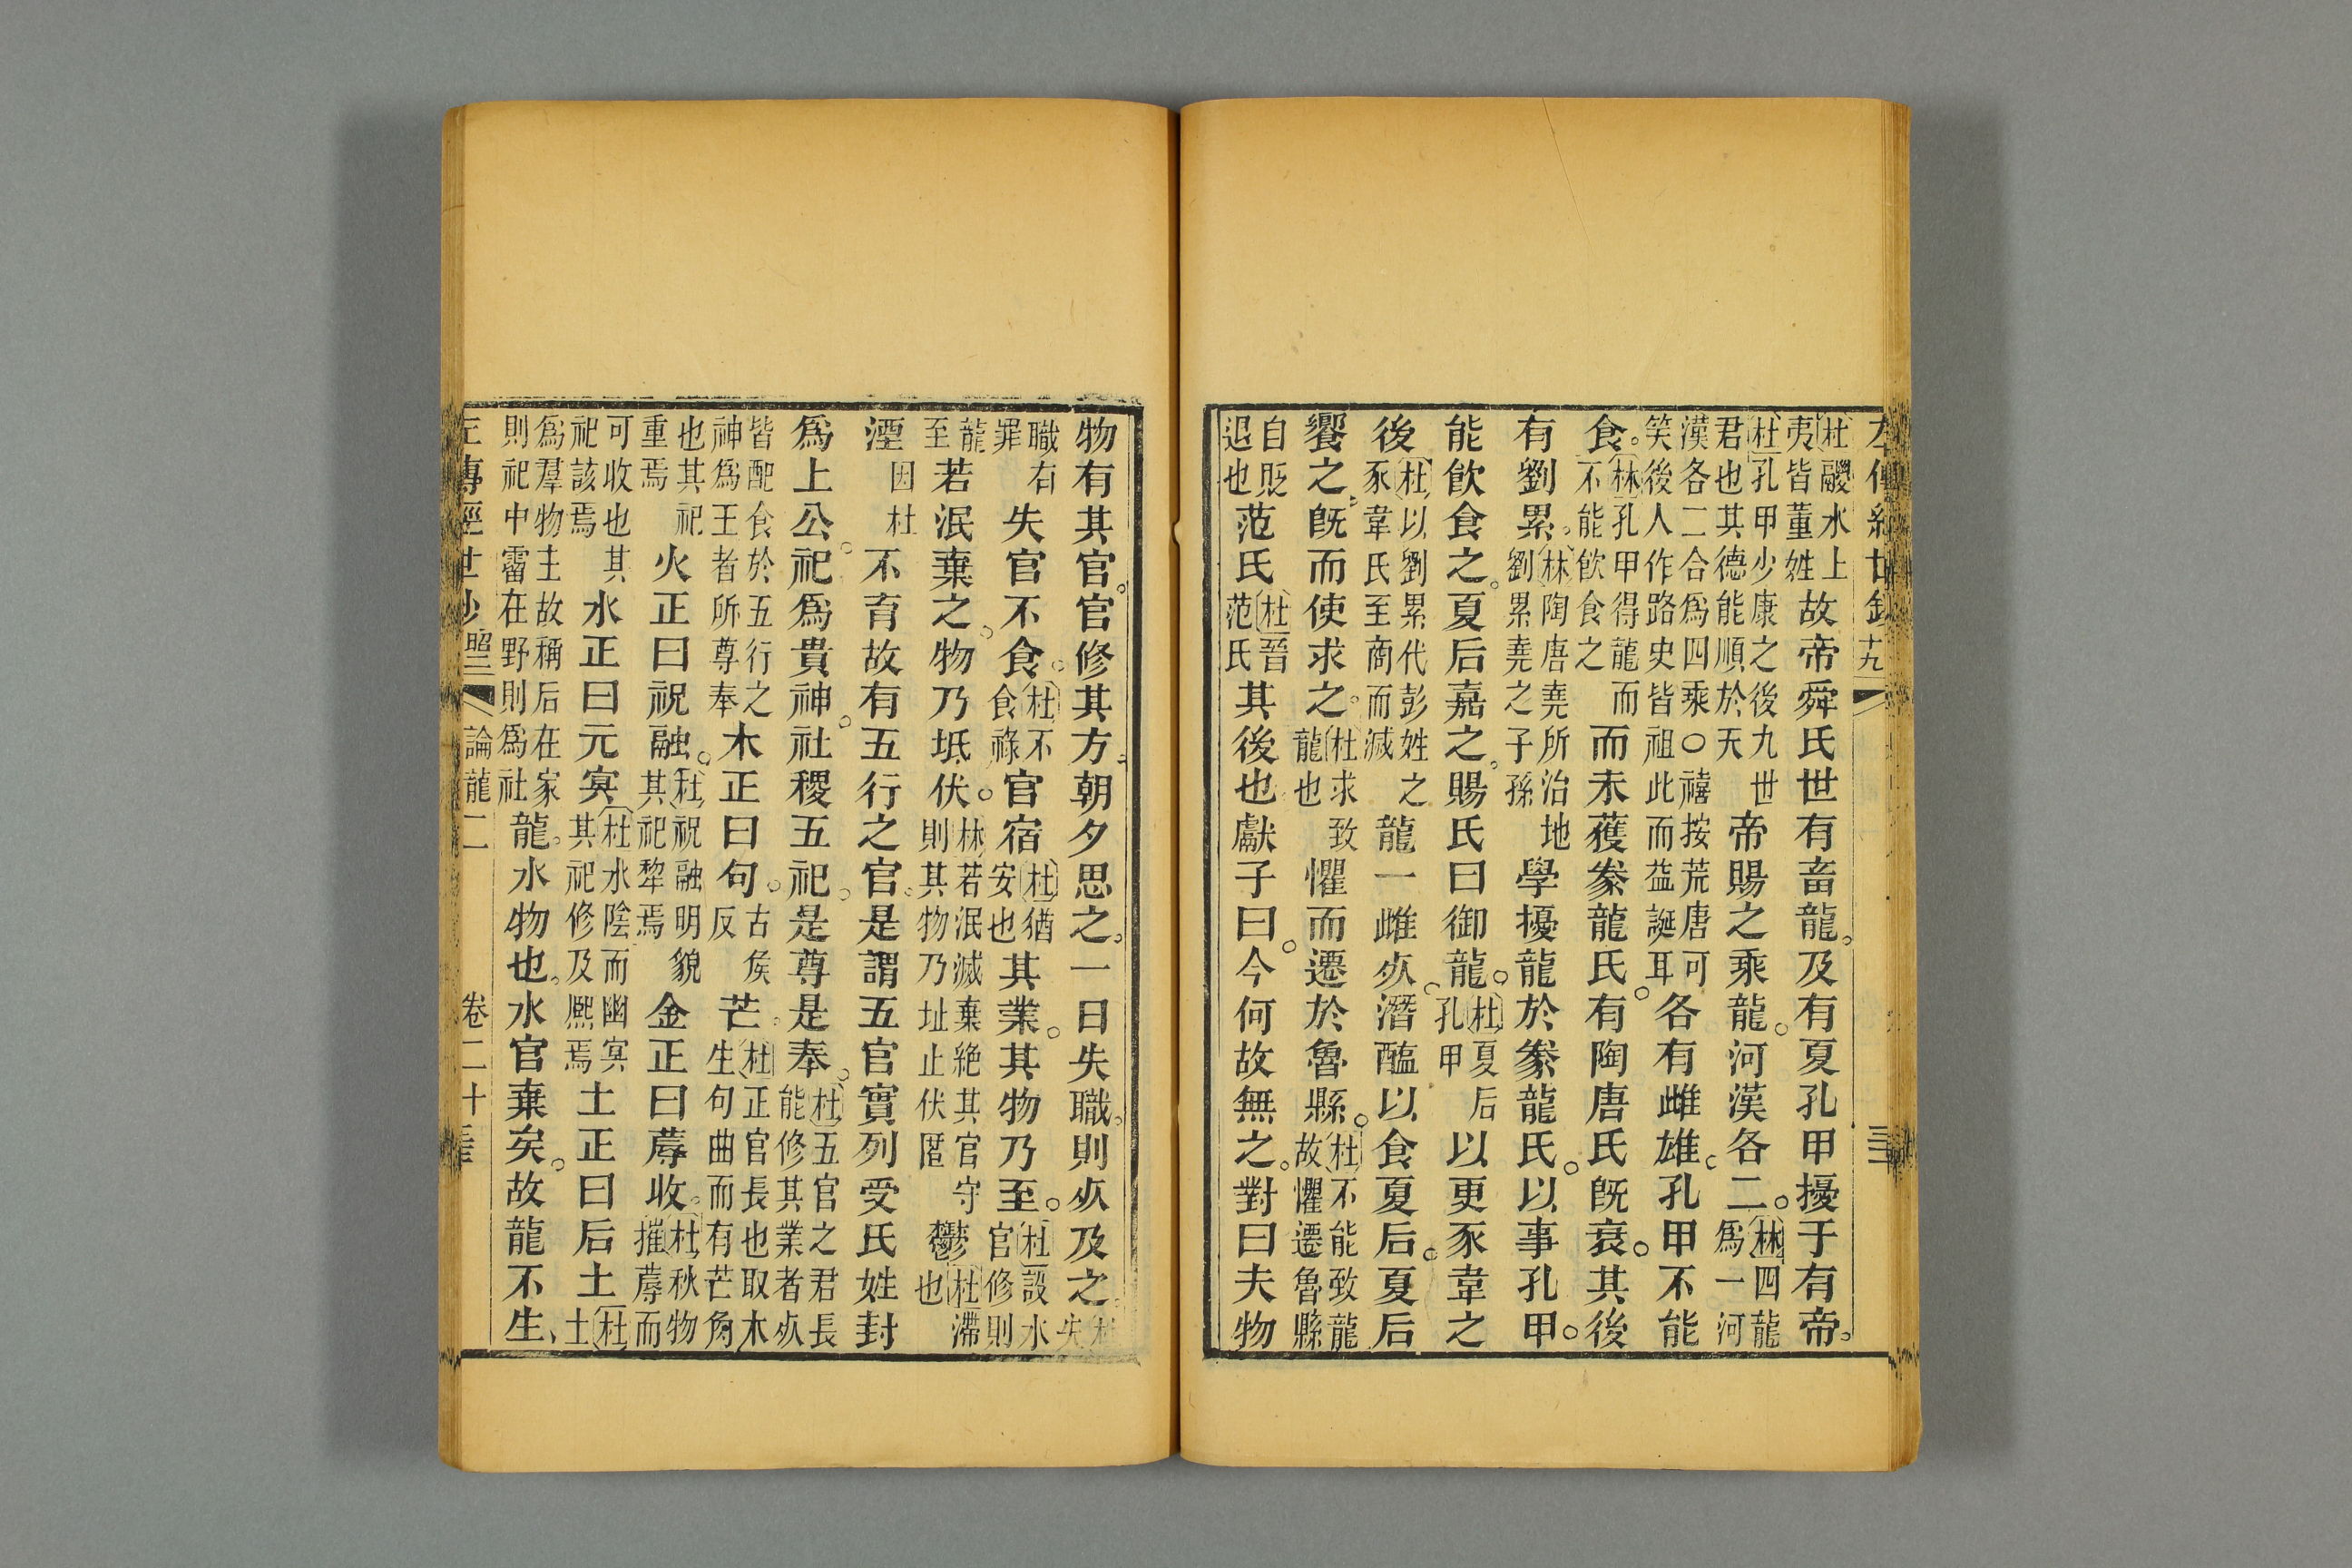 左傳經世鈔十九
杜鬷水上夷皆董姓故帝舜氏世有畜龍。及有夏孔甲擾于有帝。
杜孔甲少康之後九世君也其德能順於天帝賜之乘龍。河漢各二。林四龍爲一河
漢各二合爲四乘○禧按荒唐可笑後人作路史皆祖此而益誕耳各有雌雄。孔甲不能
食。林孔甲得龍而不能飲食之而未獲豢龍氏。有陶唐氏既衰。其後
有劉累。林陶唐堯所治地劉累堯之子孫學擾龍於豢龍氏。以事孔甲。
能飲食之。夏后嘉之。賜氏曰御龍。杜夏后孔甲以更豕韋之
後杜以劉累代彭姓之豕韋氏至商而滅龍一雌死。潛醢以食夏后。夏后
饗之。既而使求之。杜求致龍也懼而遷於魯縣。杜不能致龍故懼遷魯縣
自貶退也范氏杜晉范氏其後也獻子曰。今何故無之。對曰夫物
物有其官。官修其方。朝夕思之。一日失職。則死及之。杜失
職有罪失官不食。杜不食祿官宿杜猶安也其業。其物乃至。杜設水官修則
龍至若泯棄之。物乃坻伏。林若泯滅棄絶其官守則其物乃址止伏匿鬱杜滯也
湮因杜不育故有五行之官。是謂五官實列受氏姓封
爲上公。祀爲貴神。社稷五祀。是尊是奉。杜五官之君長能修其業者死
皆配食於五行之神爲王者所尊奉木正曰句。古侯反芒。杜正官長也取木生句曲而有芒角
也其祀重焉火正曰祝融。杜祝融明貌其祀犂焉金正曰蓐收。杜秋物摧蓐而
可收也其祀該焉水正曰元冥杜水陰而幽冥其祀修及熙焉土正曰后土杜土
爲羣物主故稱后在家則祀中霤在野則爲社龍。水物也。水官棄矣。故龍不生、
左傳經世鈔昭三 論龍二 卷二十